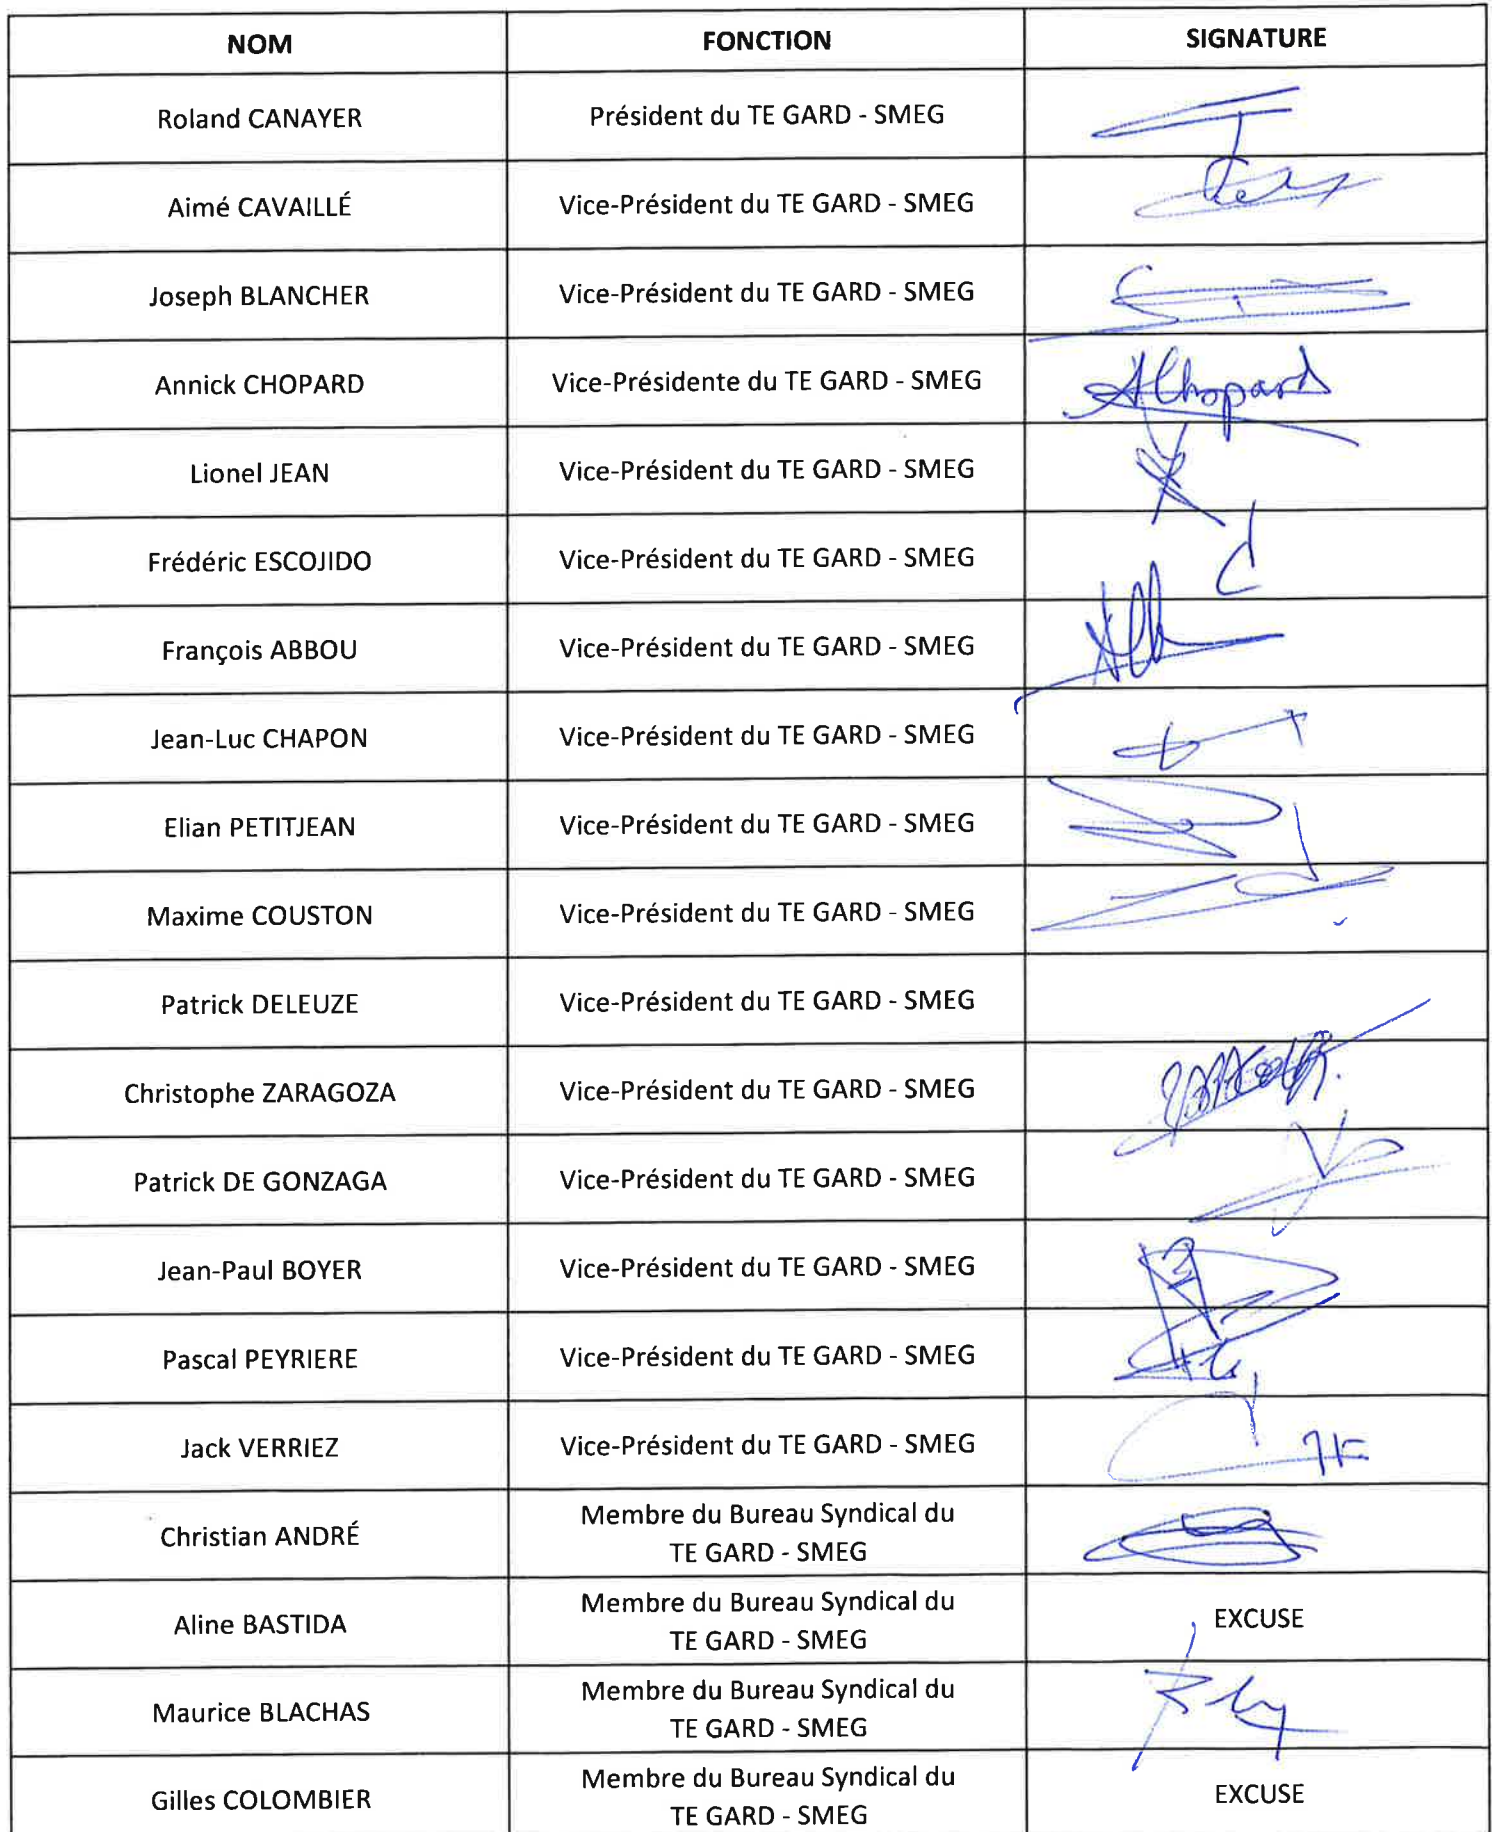 NOM FONCTION SIGNATURE
Roland CANAYER Président du TE GARD - SMEG
Aimé CAVAILLÉ Vice-Président du TE GARD - SMEG
Joseph BLANCHER Vice-Président du TE GARD - SMEG
Annick CHOPARD Vice-Présidente du TE GARD - SMEG AChopard
Lionel JEAN Vice-Président du TE GARD - SMEG
Frédéric ESCOJIDO Vice-Président du TE GARD - SMEG
François ABBOU Vice-Président du TE GARD - SMEG
Jean-Luc CHAPON Vice-Président du TE GARD - SMEG
Elian PETITJEAN Vice-Président du TE GARD - SMEG
Maxime COUSTON Vice-Président du TE GARD - SMEG
Patrick DELEUZE Vice-Président du TE GARD - SMEG
Christophe ZARAGOZA Vice-Président du TE GARD - SMEG
Patrick DE GONZAGA Vice-Président du TE GARD - SMEG
Jean-Paul BOYER Vice-Président du TE GARD - SMEG
Pascal PEYRIERE Vice-Président du TE GARD - SMEG
Jack VERRIEZ Vice-Président du TE GARD - SMEG
Christian ANDRÉ Membre du Bureau Syndical du
TE GARD - SMEG
Aline BASTIDA Membre du Bureau Syndical du
TE GARD - SMEG
EXCUSE
Maurice BLACHAS Membre du Bureau Syndical du
TE GARD - SMEG
Gilles COLOMBIER Membre du Bureau Syndical du
TE GARD - SMEG
EXCUSE